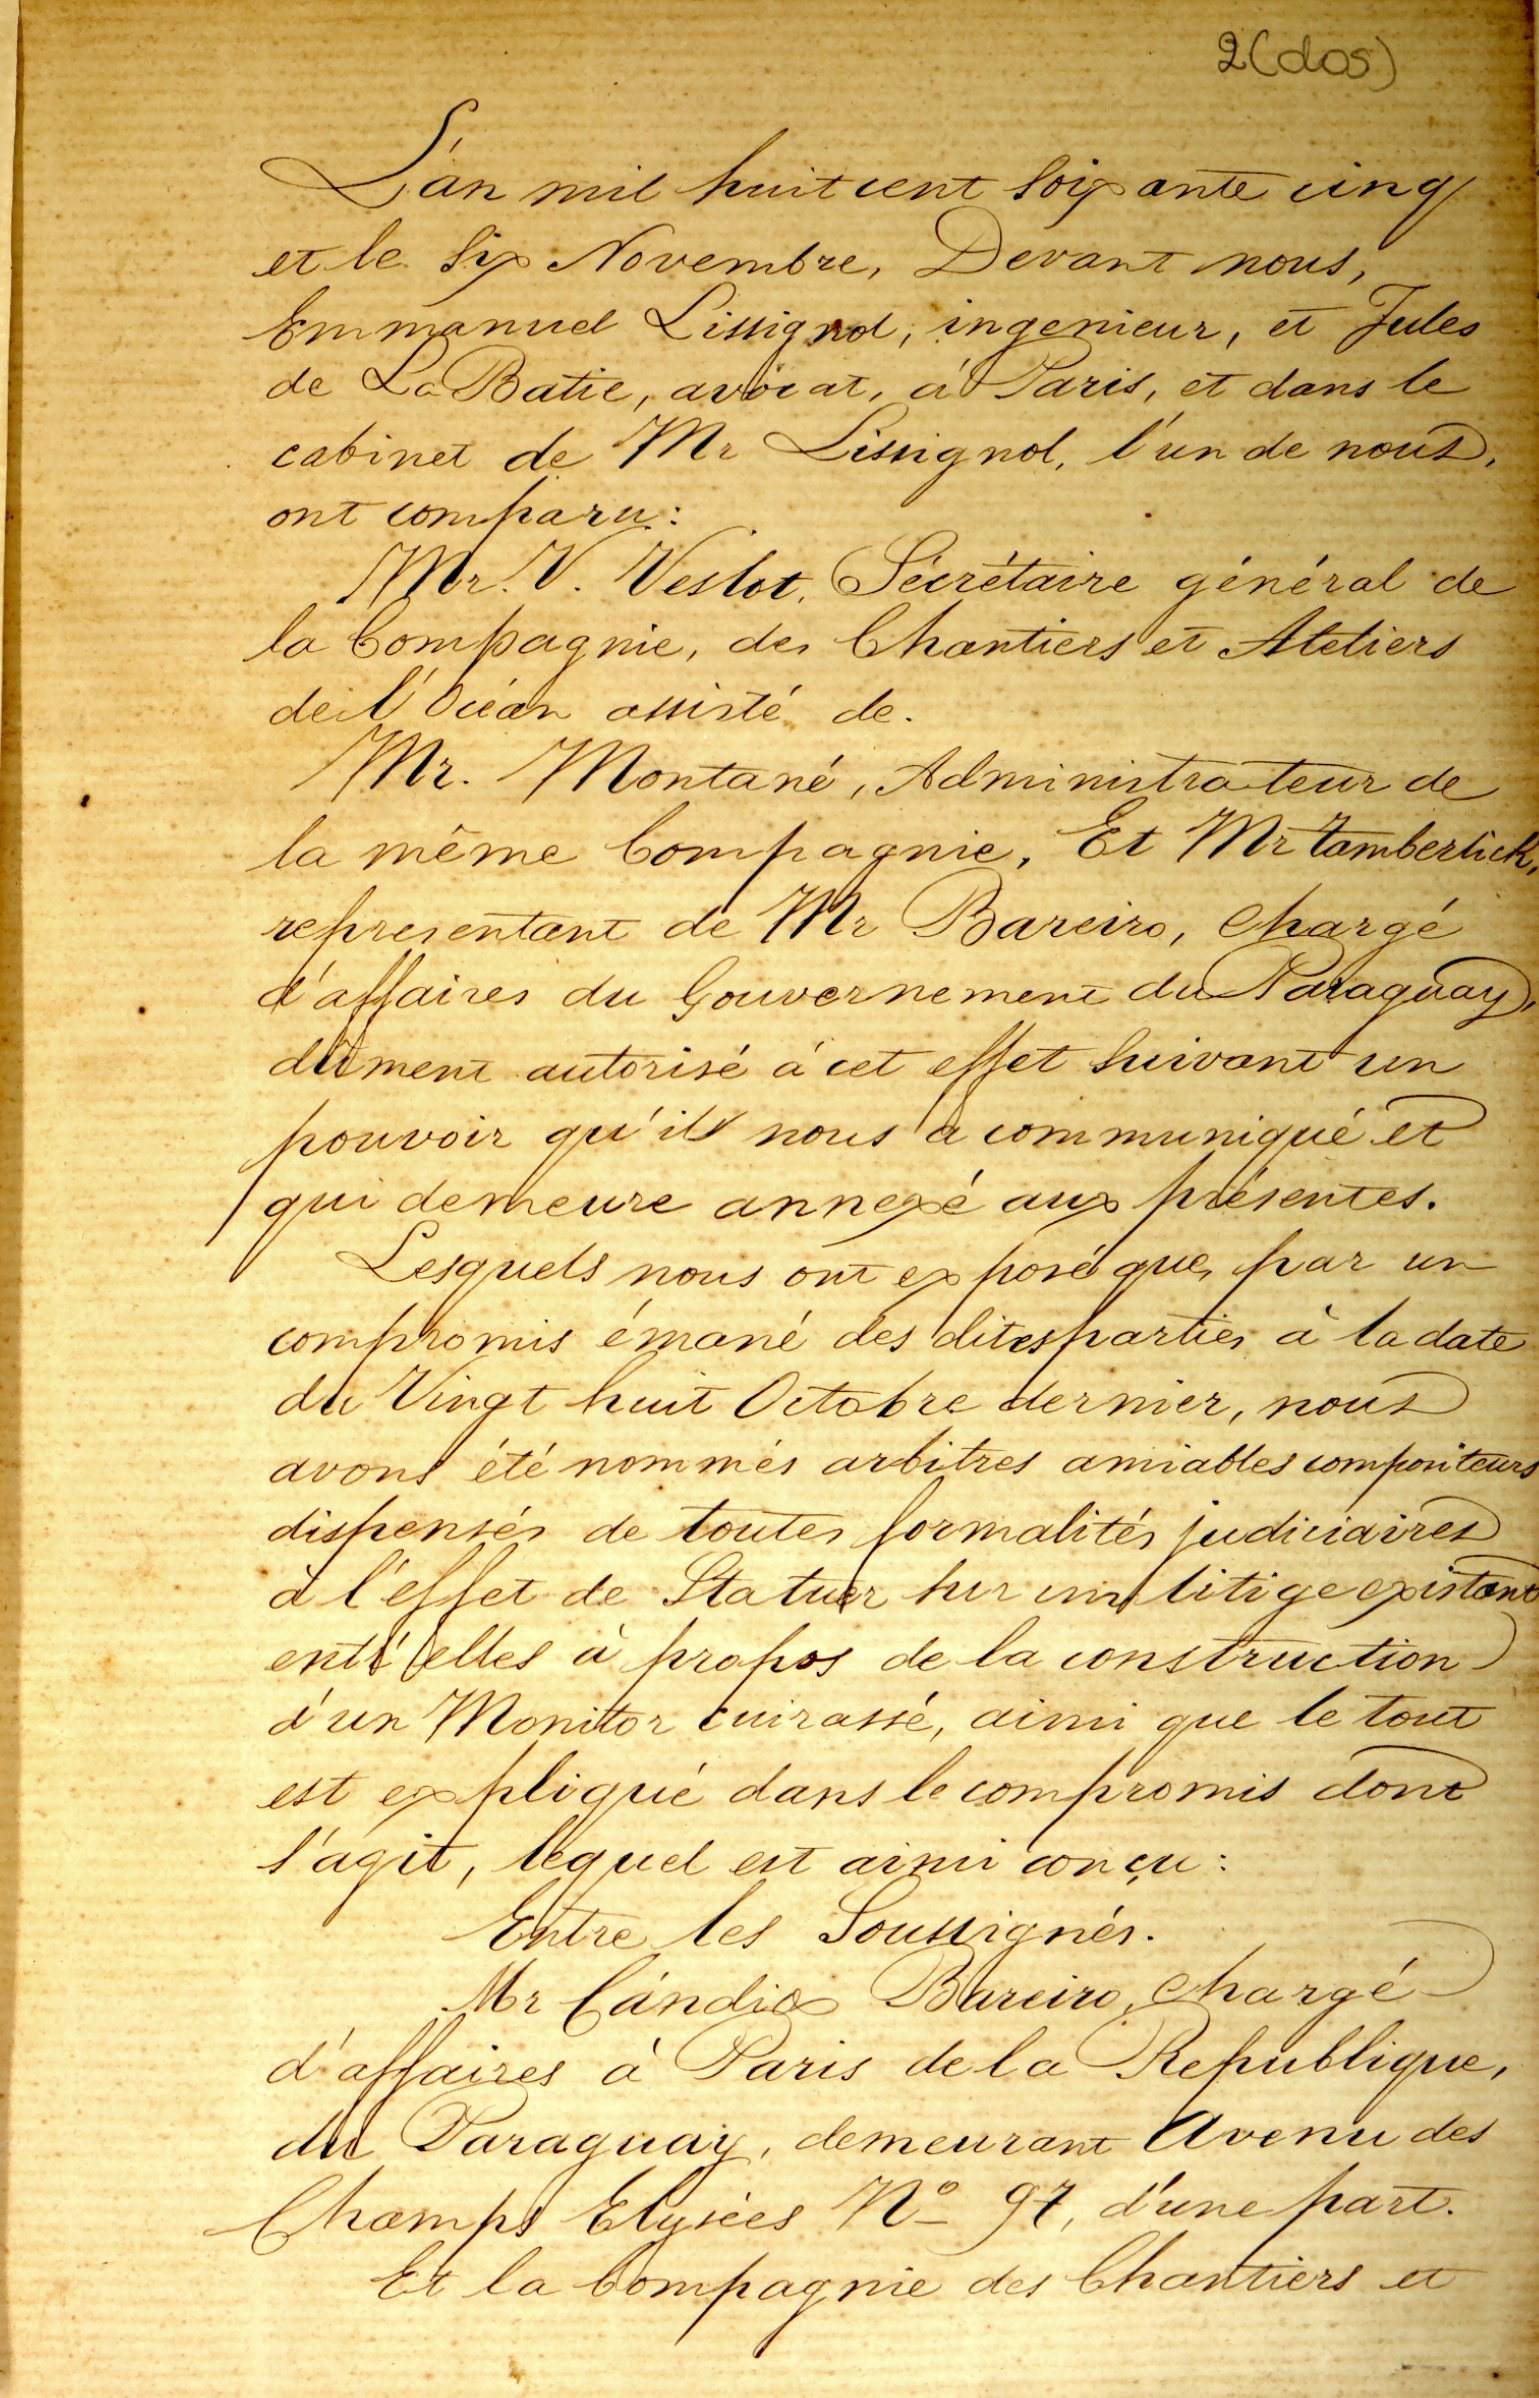 2 (dos)
L'án mil huit cent soixante cinq
et le six Novembre, Devant nous,
Emmanuel Lissignol, ingenieur, et Jules
de La Batie, avocat, à Paris, et dans le
cabinet de Mr Lissignol, l'un de nous,
ont comparu:
Mr. V. Veslot, Sécrétaire général de
la Compagnie, des Chantiers et Ateliers
de l'Océan assisté de.
Mr. Montané, Administrateur de
la même Compagnie, Et Mr Tamberlick,
representant de Mr Bareiro, chargé
d'affaires du Gouvernement du Paraguay,
dûment autorisé à cet effet suivant un
pouvoir qu'il nous a communiqué et
qui demeure annexé aux présentes.
Lesquels nous ont exposé que, par un
compromis émané des dites parties à la date
du Vingt huit Octobre dernier, nous
avons été nommés arbitres amiables compositeurs
dispensés de toutes formalités judiciaires
à l'effet de Statuer sur un litige existant
entr'elles à propos de la construction
d'un Monitor cuirassé, ainsi que le tout
est expliqué dans le compromis dont
s'agit, lequel est ainsi conçu:
Entre les Soussignés.
Mr Cándido Bareiro, chargé
d'affaires à Paris de la Republique,
du Paraguay, demeurant Avenu des
Champs Elysées Nº 97, d'une part.
Et la Compagnie des Chantiers et